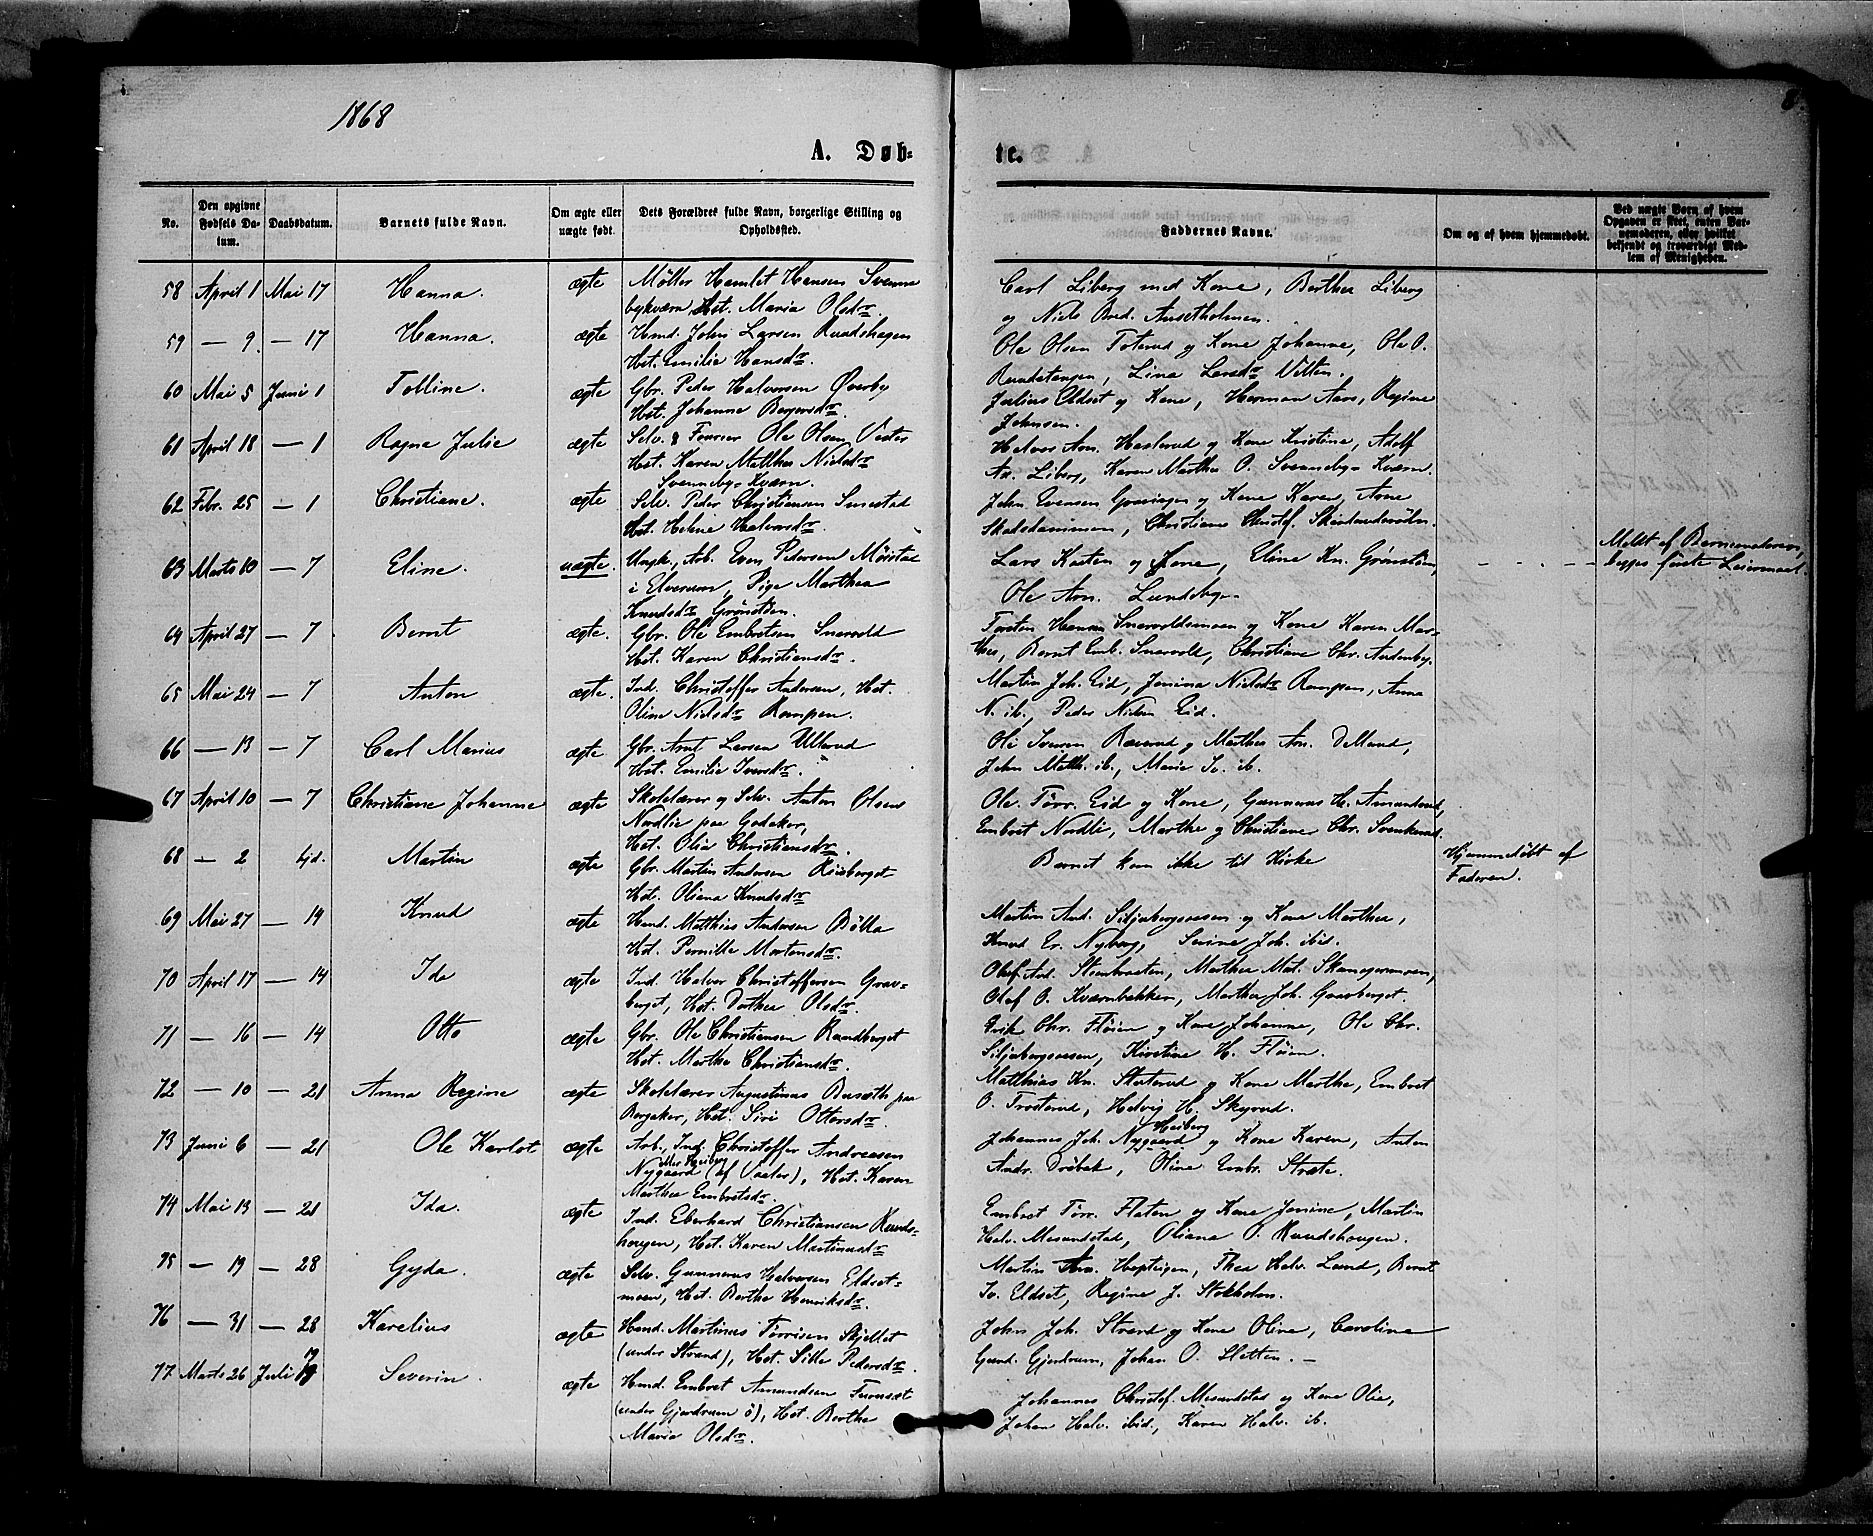 1868
A. Døb-
te.
No.
Den opgivne Fødsels Datum.
Daabsdatum.
Barnets fulde Navn.
Om ægte eller uægte født.
Dets Forældres fulde Navn, borgerlige Stilling og Opholdssted.
Faddernes Navne.
Om og af hvem hjemmedøbt.
Ved uægte Børn af hvem Opgaven er sket, enten Barnemoderen, eller hvilket bekjendt og troværdigt Medlem af Menigheden.
58 April 1 Mai 17 Hanna. ægte Møller Hamlet Hansen Svenne
bykværn, Hst. Maria Olsdr.
Carl Liberg med Kone, Berthea Liberg
og Niels Bred. Ansetholmen.
59 — 9. — 17 Hanna. ægte Hmd. John Larsen Rundshagen
Hst. Emilie Hansdr.
Ole Olsen Toterud og Kone Johanne, Ole O.
Rundstangen, Lina Larsdr Vilten.
60 Mai 5 Juni 1 Tolline. ægte Gbr. Peder Halvorsen Øverby
Hst. Johanne Bergersdr.
Julius Eldset og Kone, Herman Aars, Regine
Johnsen.
61 April 18 — 1 Ragna Julie ægte Selv. & Fourier Ole Olsen Vester
Hst. Karen Mathea Nielsdr
Svenneby-Kværn.
Halvor Arn. Haslerud og Kone Kristine, Adolf
An. Liberg, Karen Marthea O. Svenneby-Kværn.
62 Febr. 25 — 1 Christiane. ægte Selv. Peder Christiansen Smestad
Hst. Helene Halvorsdr.
John Evensen Gravingen og Kone Karen, Arne
Skadsdammen, Christiane Christof.
63 Marts 10 — 7 Eline. uægte. Ungk., Arb. Even Pedersen Mørstad
i Elverum, Pige Marthea
Knudsdr Grønsten.
Lars Kasten og Kone, Eline Kn. Grønsten,
Ole Arn. Lundeby-
Meldt af Barnemoderen,
begges første Leiermaal.
64 April 27 — 7 Bernt ægte. Gbr. Ole Embretsen Snarvold
Hst. Karen Christiansdr.
Torsten Hansen Snarvoldsmoen og Kone Karen Mar-
thea, Bernt Emb. Snarvold, Christiane Chr. Andenby.
65 Mai 24 — 7 Anton ægte. Ind. Christoffer Andersen, Hst.
Oline Nielsdr Rampen.
Martin Joh. Eid, Jenina Nielsdr Rampen, Anna
N. ib., Peder Nielsen Eid.
66 — 13 — 7 Carl Marius ægte Gbr. Arnt Larsen Ullerud
Hst. Emilie Iversdr.
Ole Iversen Raverud og Marthea Arn. Dellerud,
John Matth. ib., Marie Iv. ib.
67 April 10 — 7 Christiane Johanne ægte Skolelærer og Selv. Anton Olsen
Nordlie paa Godaker,
Hst. Olia Christiansdr.
Ole Torr. Eid og Kone, Gunnerus H. Amundrud,
Embret Nordli, Marthea og Christiane Chr. Svenkerud.
68 — 2 hjd. Martin ægte Gbr. Martin Andersen Risberget
Hst. Oliana Knudsdr
Barnet kom ikke til Kirke
Hjemmedøbt af
Faderen.
69 Mai 27 — 14 Knud ægte Hmd. Matthias Andersen Bølla
Hst. Pernille Mortensdr.
Martin And. Siljubergsveen og Kone Marthea,
Knud Er. Nyberg, Serine Joh. ibid.
70 April 17 — 14 Ida ægte Ind. Halvor Christoffersen Grav-
berget, Hst. Dorthea Olsdr.
Olaf And. Stenbraaten, Marthea Mat. Skameyermoen,
Olaf O. Kværnbekken, Marthea Joh. Gravberget.
71 — 16 — 14 Otto ægte Gbr. Ole Christiansen Rundberget
Hst. Marthea Christiansdr.
Erik Chr. Fløien og Kone Johanne, Ole Chr.
Siljubergsveen, Kirstine H. Fløien.
72 — 10 — 21 Anna Regine ægte Skolelærer Augustinus Buseth paa
Bergaker, Hst. Siri Ottersdr.
Matthias Kn. Staterud og Kone Marthea, Embret
O. Trosterud, Helvig H. Skyrud.
73 Juni 6 — 21 Ole Karlot ægte Arb., Ind. Christoffer Andreasen
Nygaard eller Heiberg (af Vaaler), Hst. Karen
Marthea Embretsdr.
Johannes Joh. Nygaard Heiberg og Kone Karen, Anton
Andr. Drøbak, Oline Embr. Stræte.
74 Mai 13 — 21 Ida. ægte Ind. Eberhard Christiansen Runds-
hougen, Hst. Karen Martinusdr
Embret Torr. Flaten og Kone Jenine, Martin
Halv. Mesundstad, Oliana O. Rundshougen.
75 — 19 — 28 Gyda. ægte Selv. Gunnerus Halvorsen Eldset-
moen, Hst. Berthe Henriksdr.
Martin Arn. Heptigen, Thea Halv. Lund, Bernt
Iv. Eldset, Regine J. Stokholm.
76 — 31 — 28 Karelius ægte Hmd. Martinus Torrisen Skjellet
(under Strand), Hst. Sille Pedersdr.
John Joh. Strand og Kone Oline, Caroline
Gund. Gjerdrum, Johan O. Sletten. —
77 Marts 26 Juli 19 Severin. ægte Hmd. Embret Amundsen Furuset
(under Gjerdrum ø), Hst. Berthe
Maria Olsdr.
Johannes Christof. Mesundstad og Kone Olia,
Johan Halv. ibid., Karen Halv. ib.